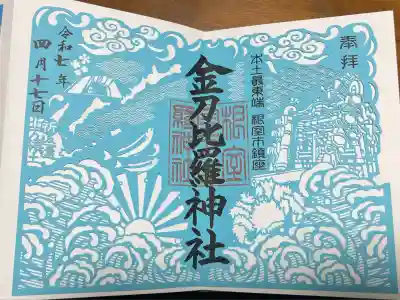 奉拝
本土最東端 根室市鎮座
金刀比羅神社
令和七年
四月十七日